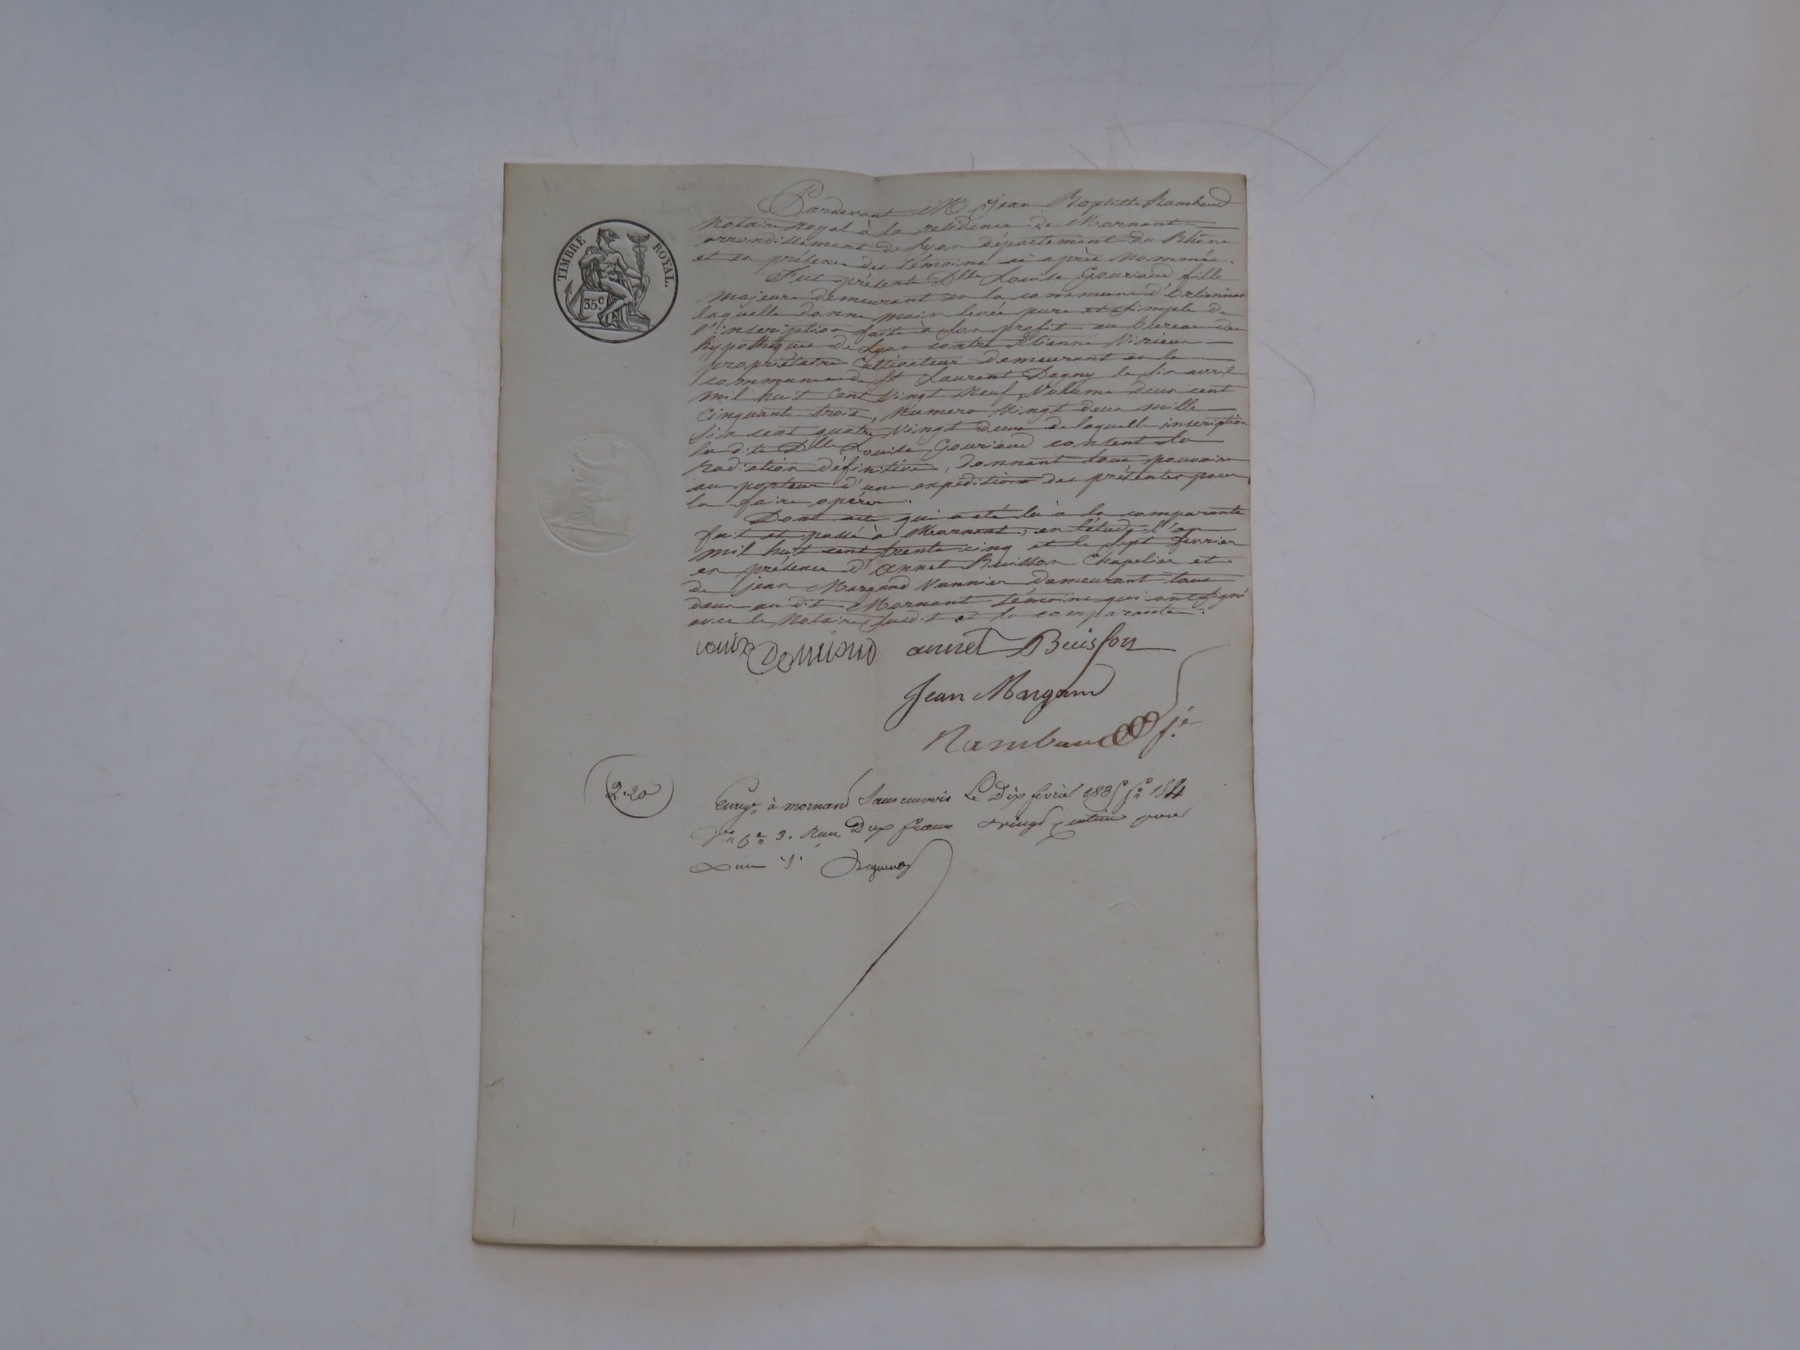 TIMBRE ROYAL.
35 c
Pardevant Me Jean Baptiste Rambaud
notaire royal à la residence de Mornant
arrondissement de Lyon département du Rhône
et en présence des témoins ci après nommés.
Fut présente Dlle Louise Gouriaud fille
majeure demeurant en la commune d'Orliénas
laquelle donne main levée pure et simple de
l'inscription faite à son profit au bureau des
hypothèques de Lyon contre Etienne Virieux
propriétaire cultivateur demeurant en la
commune de St Laurent Dagny le six avril
mil huit cent vingt neuf, Volume deux cent
cinquante trois, Numero vingt deux mille
six cent quatre vingt deux de laquelle inscription
la dite Dlle Louise Gouriaud consent la
radiation définitive, donnant tous pouvoirs
au porteur d'une expédition des présentes pour
la faire opérer.
Dont acte qui a été lu à la comparante
fait et passé à Mornant, en l'étude l'an
mil huit cent trente cinq et le sept fevrier
en présence d'Annet Buisson Chapelier et
de Jean Margand Vannier demeurant tous
deux au dit Mornant témoins qui ont signé
avec le Notaire susdit et la comparante.
annet Buisson
Jean Margand
Rambaud
2.20
à mornant Le Dix fevrier 1835 fo 184
Dix francs vingt